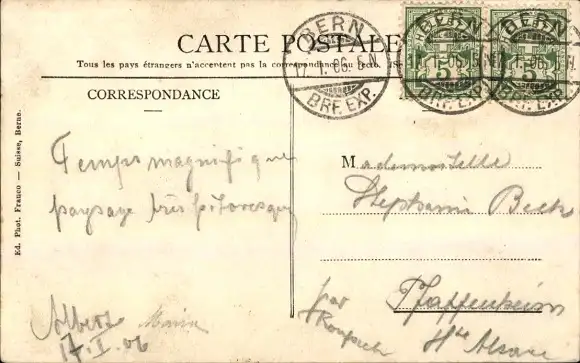 CARTE POSTALE
Tous les pays étrangers n'acceptent pas la correspondance au recto.
BERN
17. I. 06.
BRF. EXP.
BERN
I. 06.
BRF. EXP.
BERN
I. 06.
BRF. EXP.
5
5
CORRESPONDANCE
Temps magnifique
paysage très pitoresque
Albert Maria
17. I. 06
Mademoiselle
Stephanie Beck
Pfaffenheim
par
Hte Alsace
Ed. Phot. Franco — Suisse, Berne.